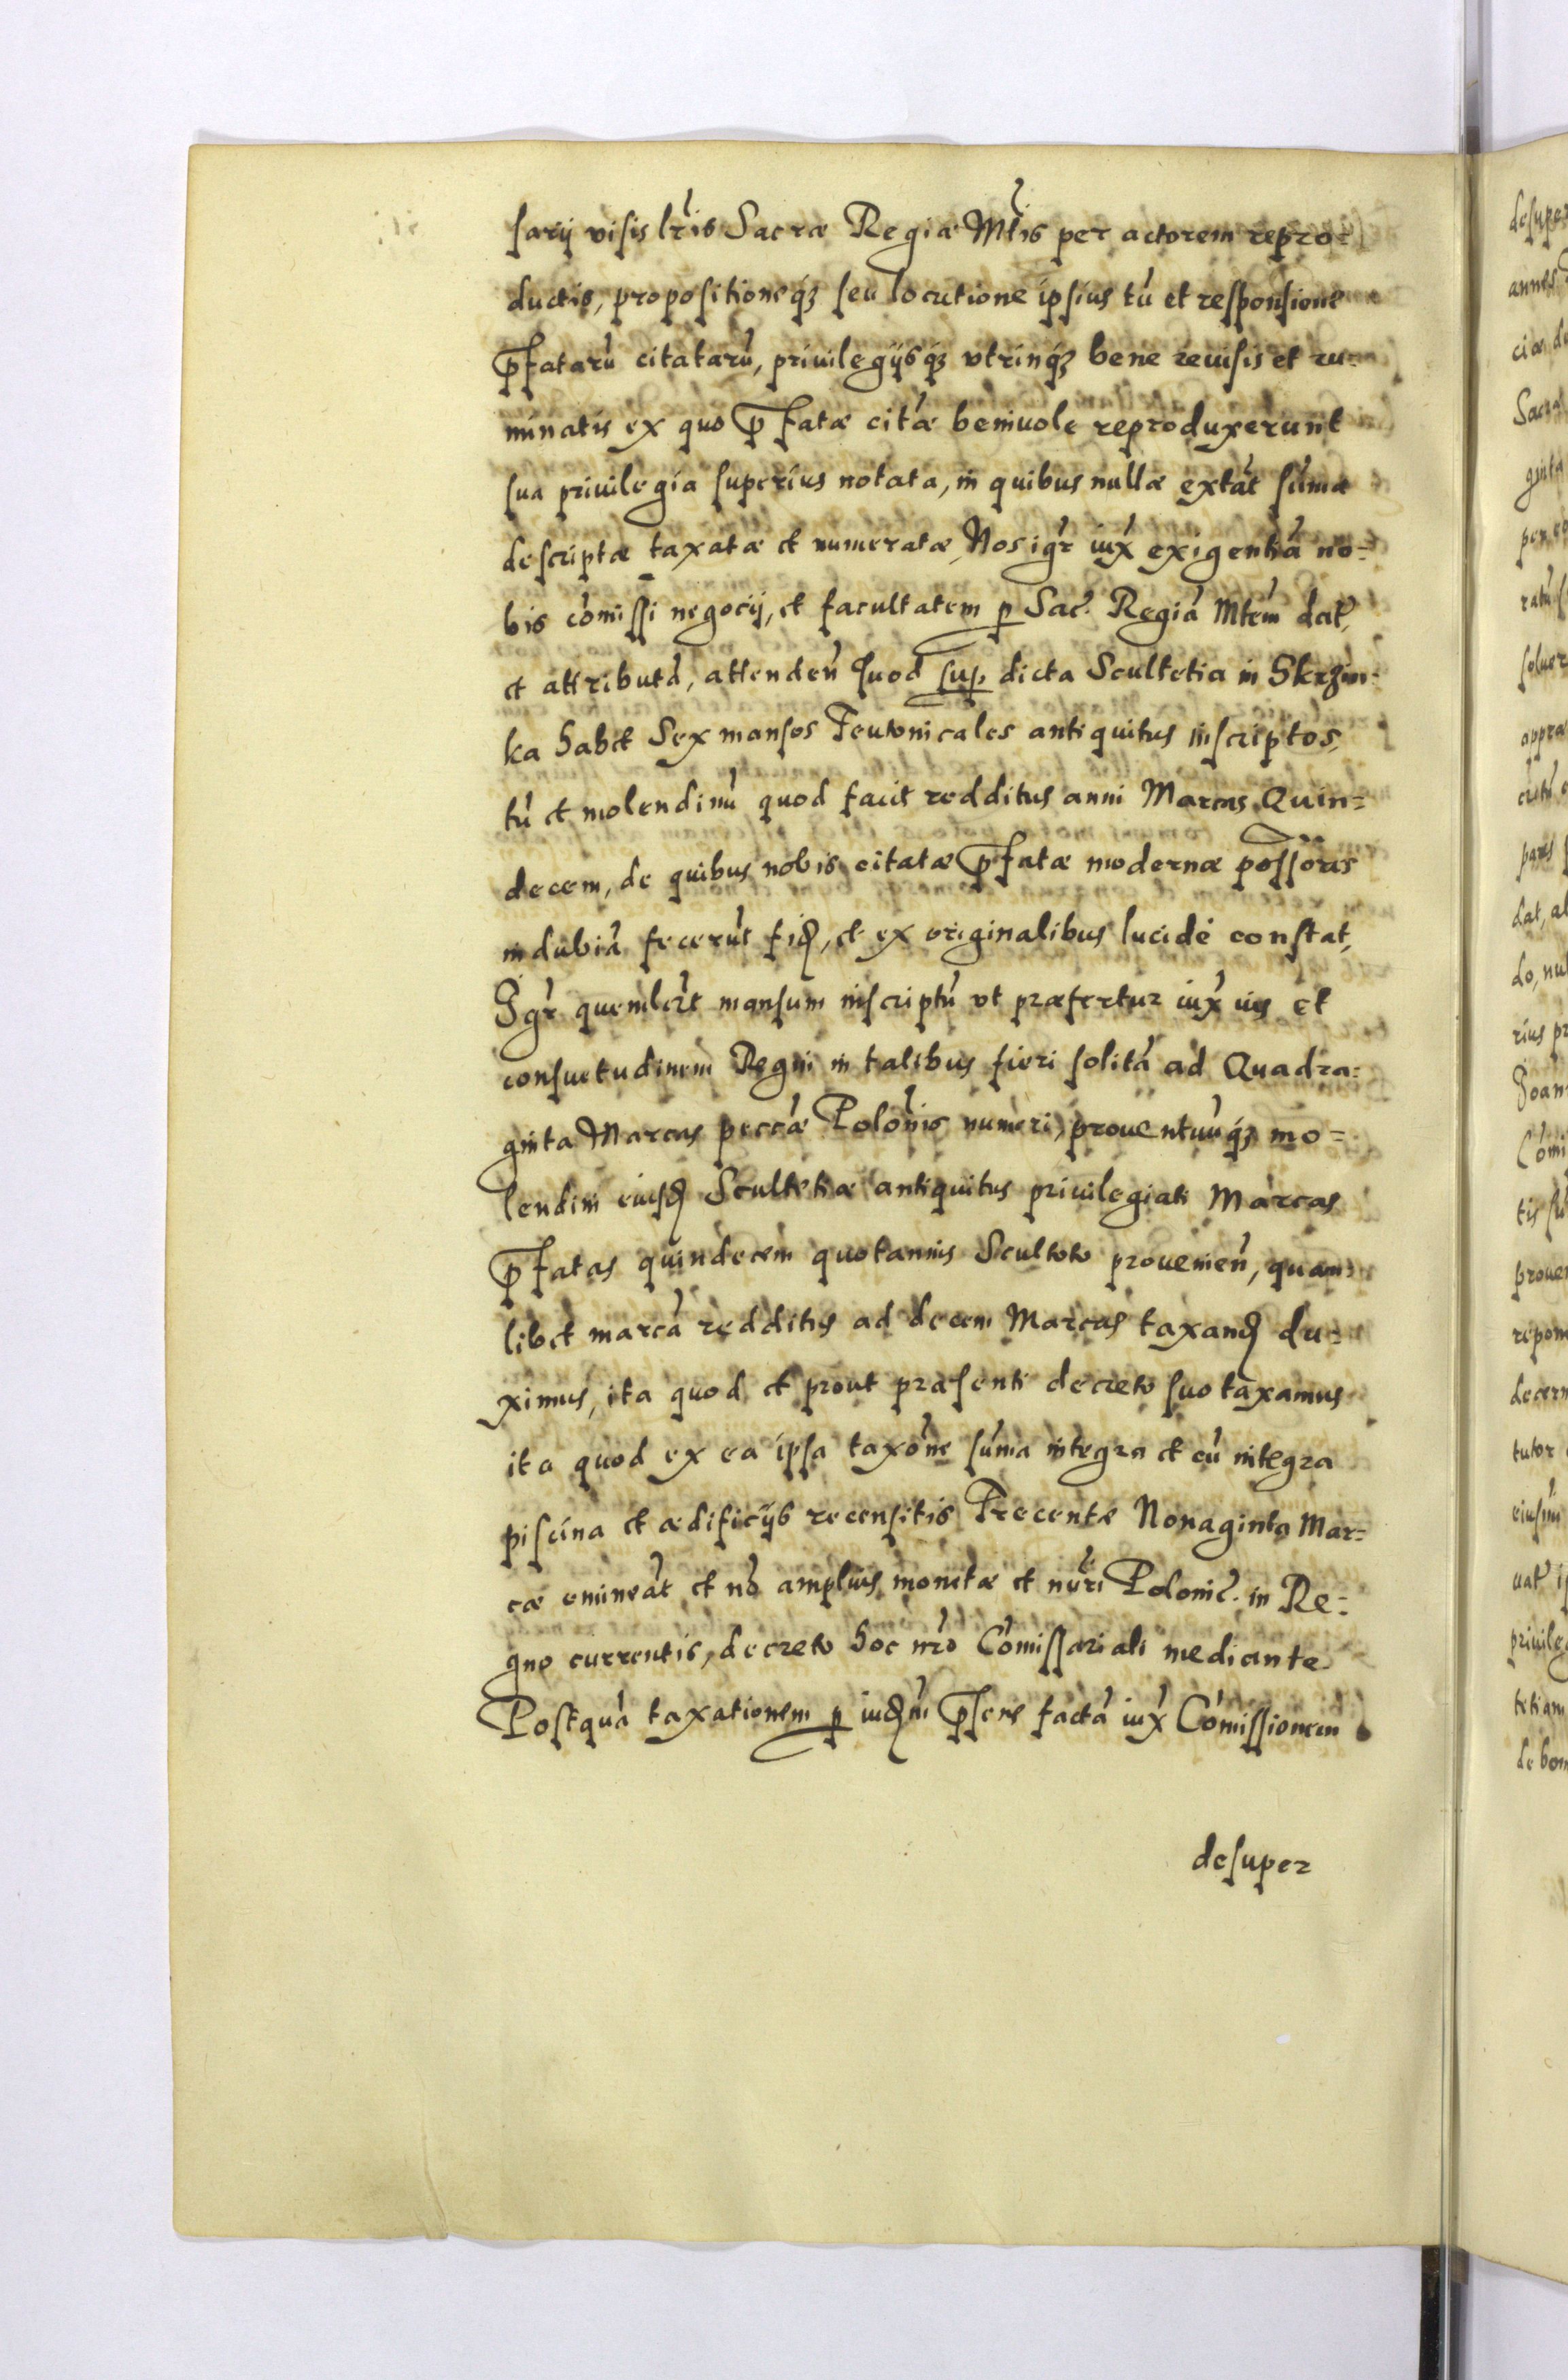 sarij visis lris Sacræ Regiæ Mtis per actorem repro=
ductis, propositioneq₃ seu locutione ipsius tū et responsione
p̄fatarū citatarū, priuilegijsq₃ vtrinq₃ bene reuisis et ru=
minatis ex quo p̄fatæ citæ beniuole reproduxerunt
sua priuilegia superius notata, in quibus nullæ extāt sūmæ
descriptæ taxatæ et numeratæ, Nos igr̄ iux̄ exigentiā no=
bis cōmissi negocij, et facultatem ꝑ Sac. Regiā Mtem dat̄,
et attributā, attendeñ quod sup. dicta Scultetia in Skrzin=
ka habet Sex mansos Teutonicales antiquitus inscriptos,
tū et molendinū quod facit redditus anni Marcas Quin=
decem, de quibus nobis citatæ p̄fatæ modernæ possōres
indubiā fecerūt fid, et ex originalibus lucidè constat,
Igr̄ quemlibt mansum inscriptū vt præfertur iux̄ ius et
consuetudinem Regni in talibus fieri solitā ad Quadra=
ginta Marcas peccæ Polōnis numeri, prouentuūq₃ mo=
lendini eiusd Scultetiæ antiquitus priuilegiati Marcas
p̄fatas quindecem quotannis Sculteto proueniēn, quam=
libet marcā redditus ad decem Marcas taxand du=
ximus, ita quod et prout præsenti decreto suo taxamus
ita quod ex ea ipsa taxōne sūma integra et cū integra
piscina et ædificijs recensitis Trecentæ Nonaginta Mar=
cæ emineāt et nō amplius monetæ et nūri Polonic̄. in Re=
gno currentis, decreto hoc nr̄o Cōmissariali mediante
Postquā taxationem ꝑ iudm̄ p̄sens factā iux̄ Cōmissionem
desuper